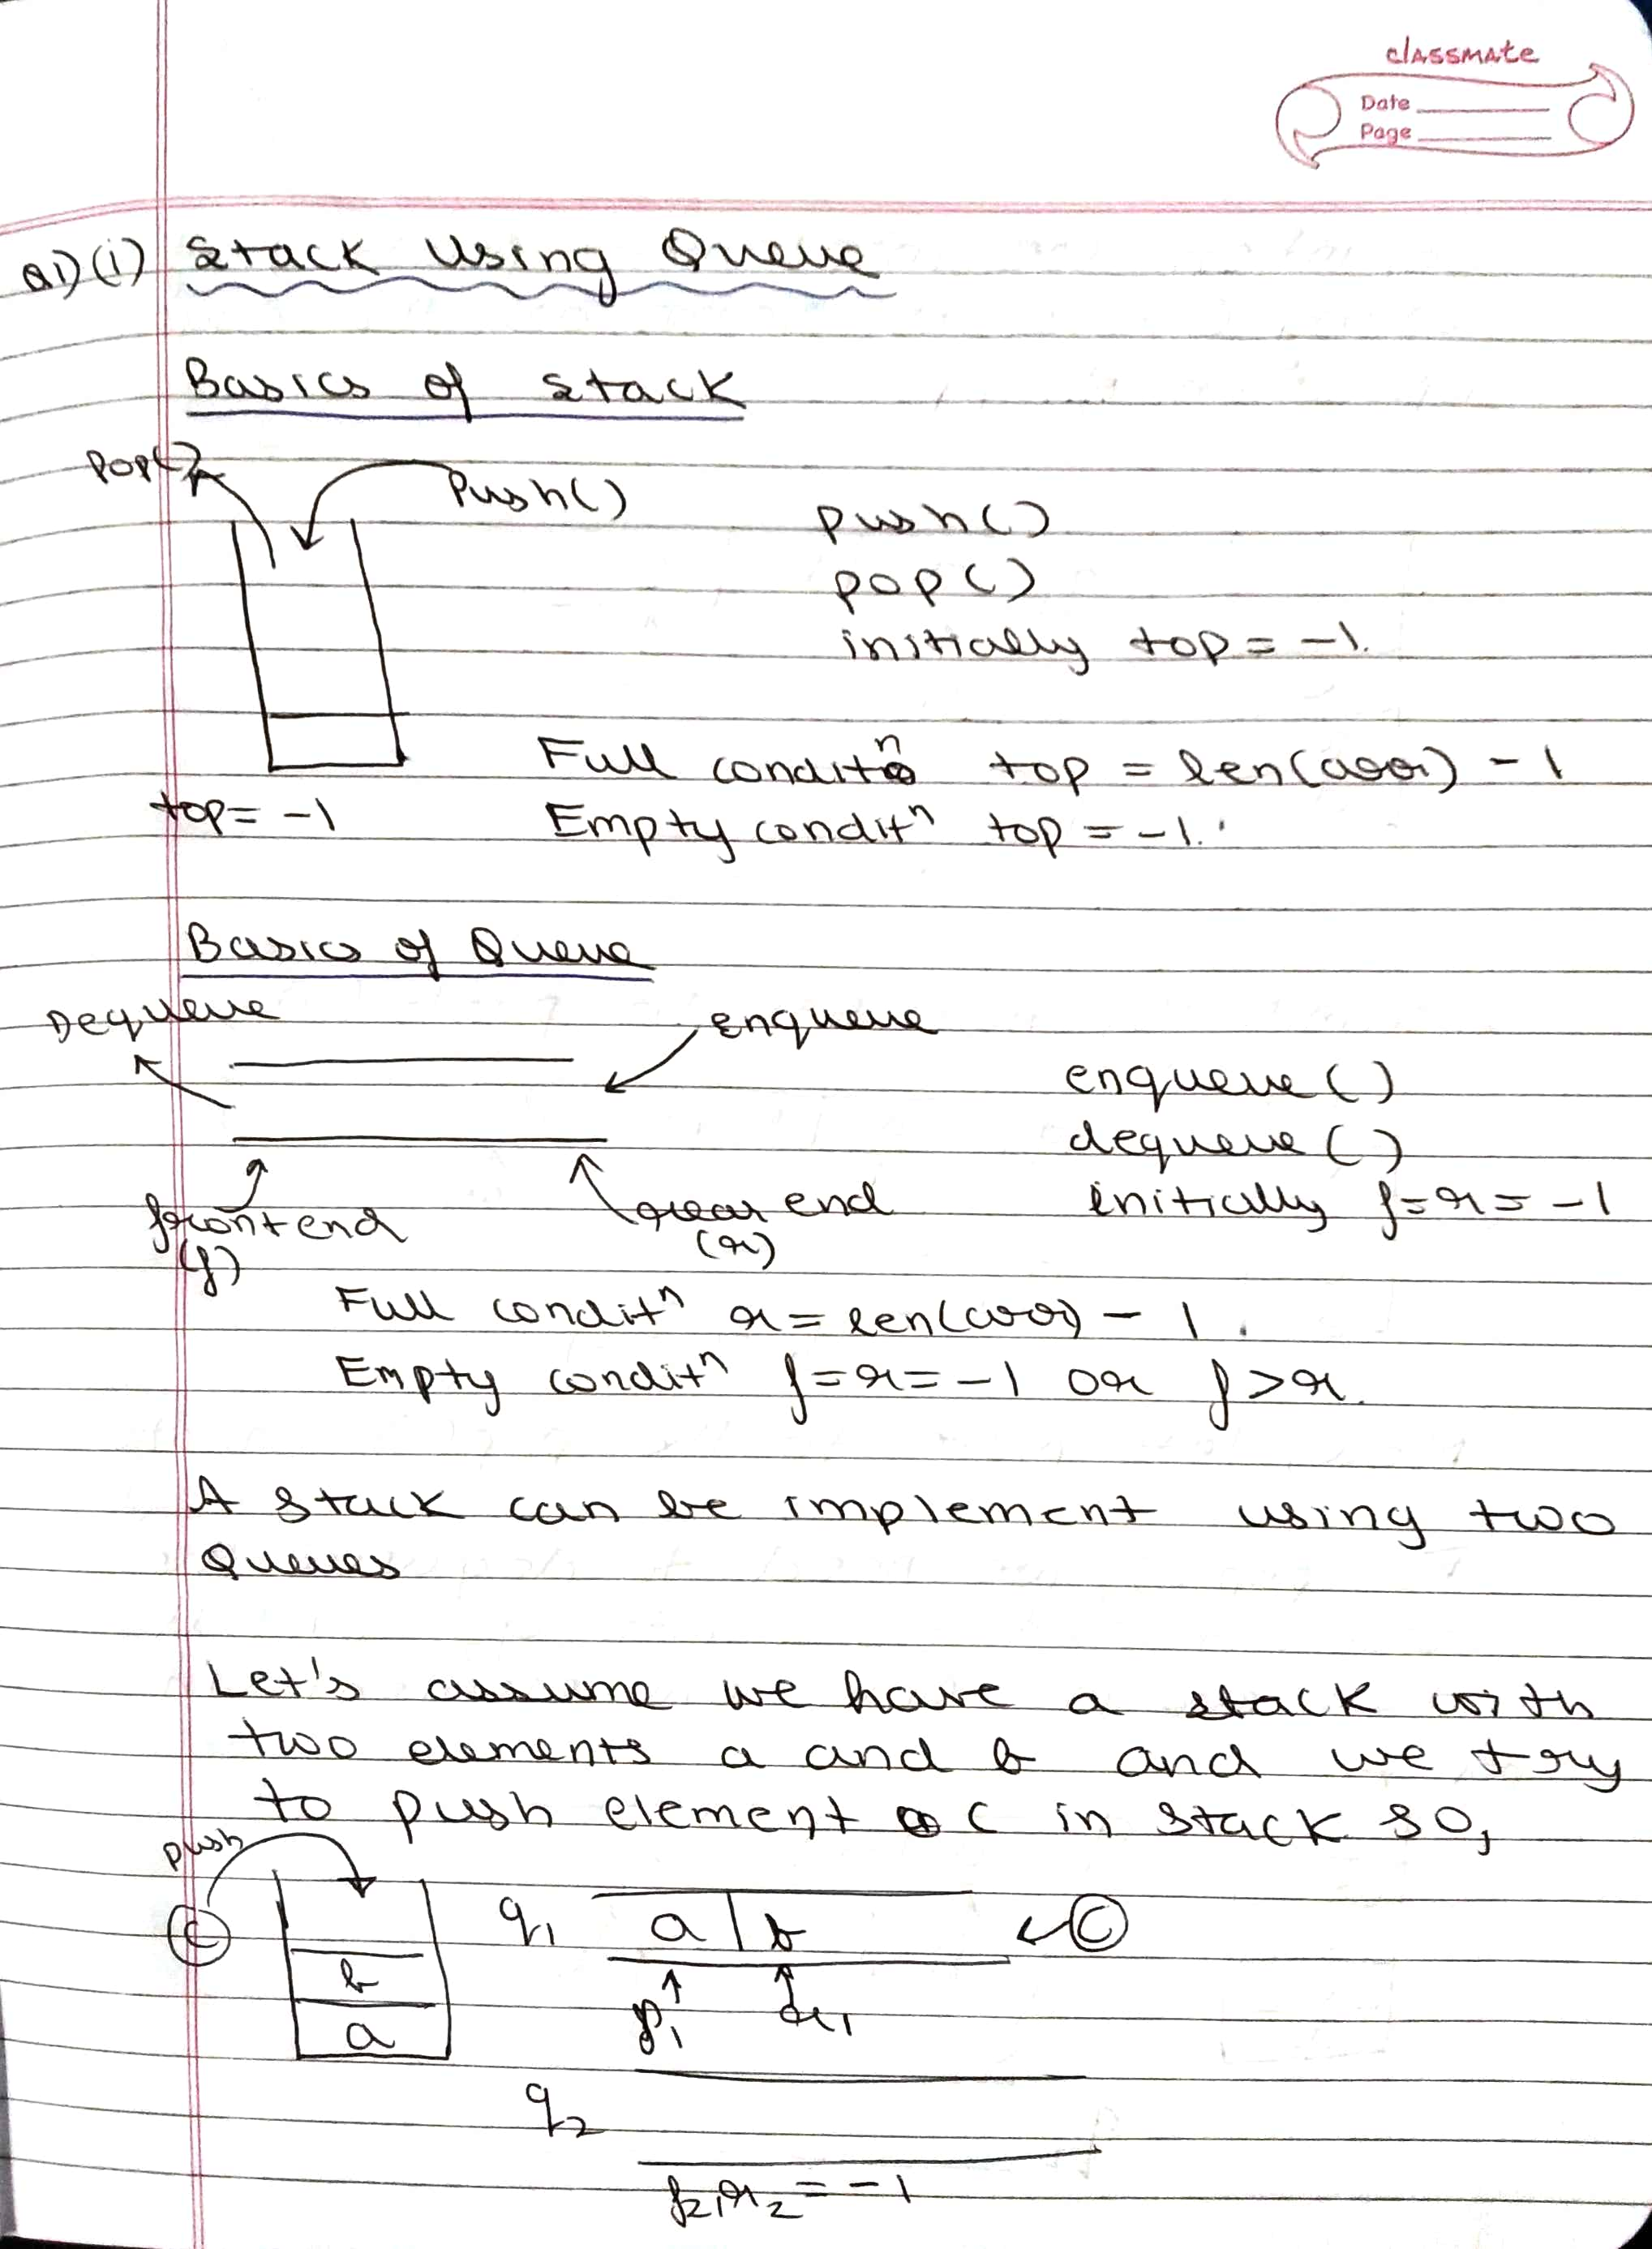 classmate
Date
Page
Q1) (i) Stack Using Queue
Basics of stack
Pop()
Push()
push()
pop()
initially top = -1.
Full conditn top = len(arr) - 1
top = -1
Empty conditn top = -1.
Basics of Queue
Dequeue
enqueue
enqueue()
dequeue()
front end
(f)
rear end
(r)
initially f=r= -1
Full conditn r = len(arr) - 1.
Empty conditn f=r=-1 or f>r.
A stack can be implement using two
Queues
Let's assume we have a stack with
two elements a and b and we try
to push element c in stack so,
push
c
b
a
q1 a b c
f1 r1
q2
f2, r2 = -1